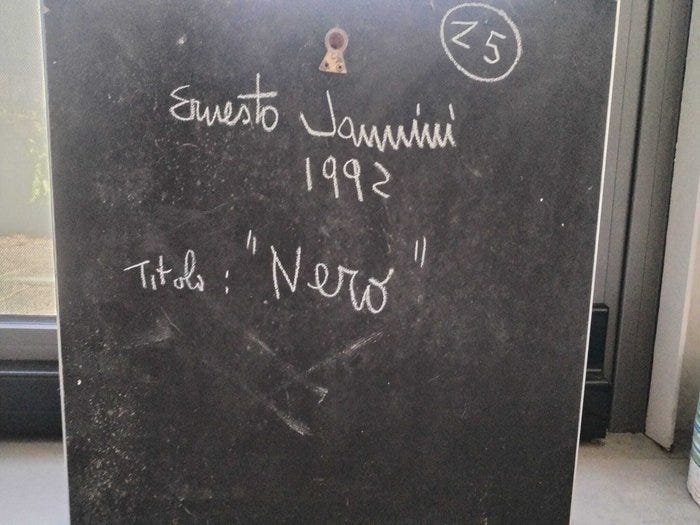 Z5
Ernesto Jannini
1992
Titolo: "Nero"